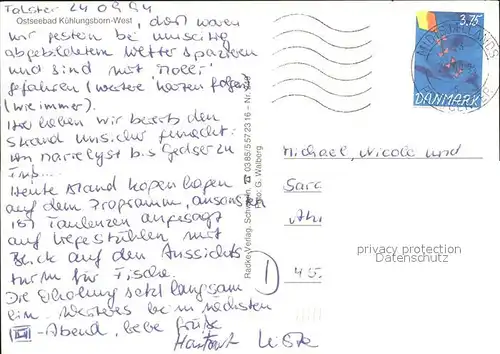 Falster 24 09 94
Ostseebad Kühlungsborn-West
, dort waren
wir gestern bei umseitig
abgebildetem Wetter spazieren
und sind mit
gefahren (weitere Karten folgen)
(wie immer).
haben wir bereits den
Strand unsicher gemacht:
von Marielyst bis Gedser zu
Fuß...
Heute stand Kopenhagen
auf dem Programm, ansonsten
ist Faulenzen angesagt
auf Liegestühlen mit
Blick auf den Aussichts
turm für Fische.
Die Erholung setzt langsam
ein. Weiteres beim nächsten
-Abend, liebe Grüße
Hartmut
Radke-Verlag, Schwerin, ☎ 0385/557 23 16 - Nr.
Foto: G. Walberg
3,75
DANMARK
Michael, Nicole und
Sarc
45.
privacy protection
Datenschutz